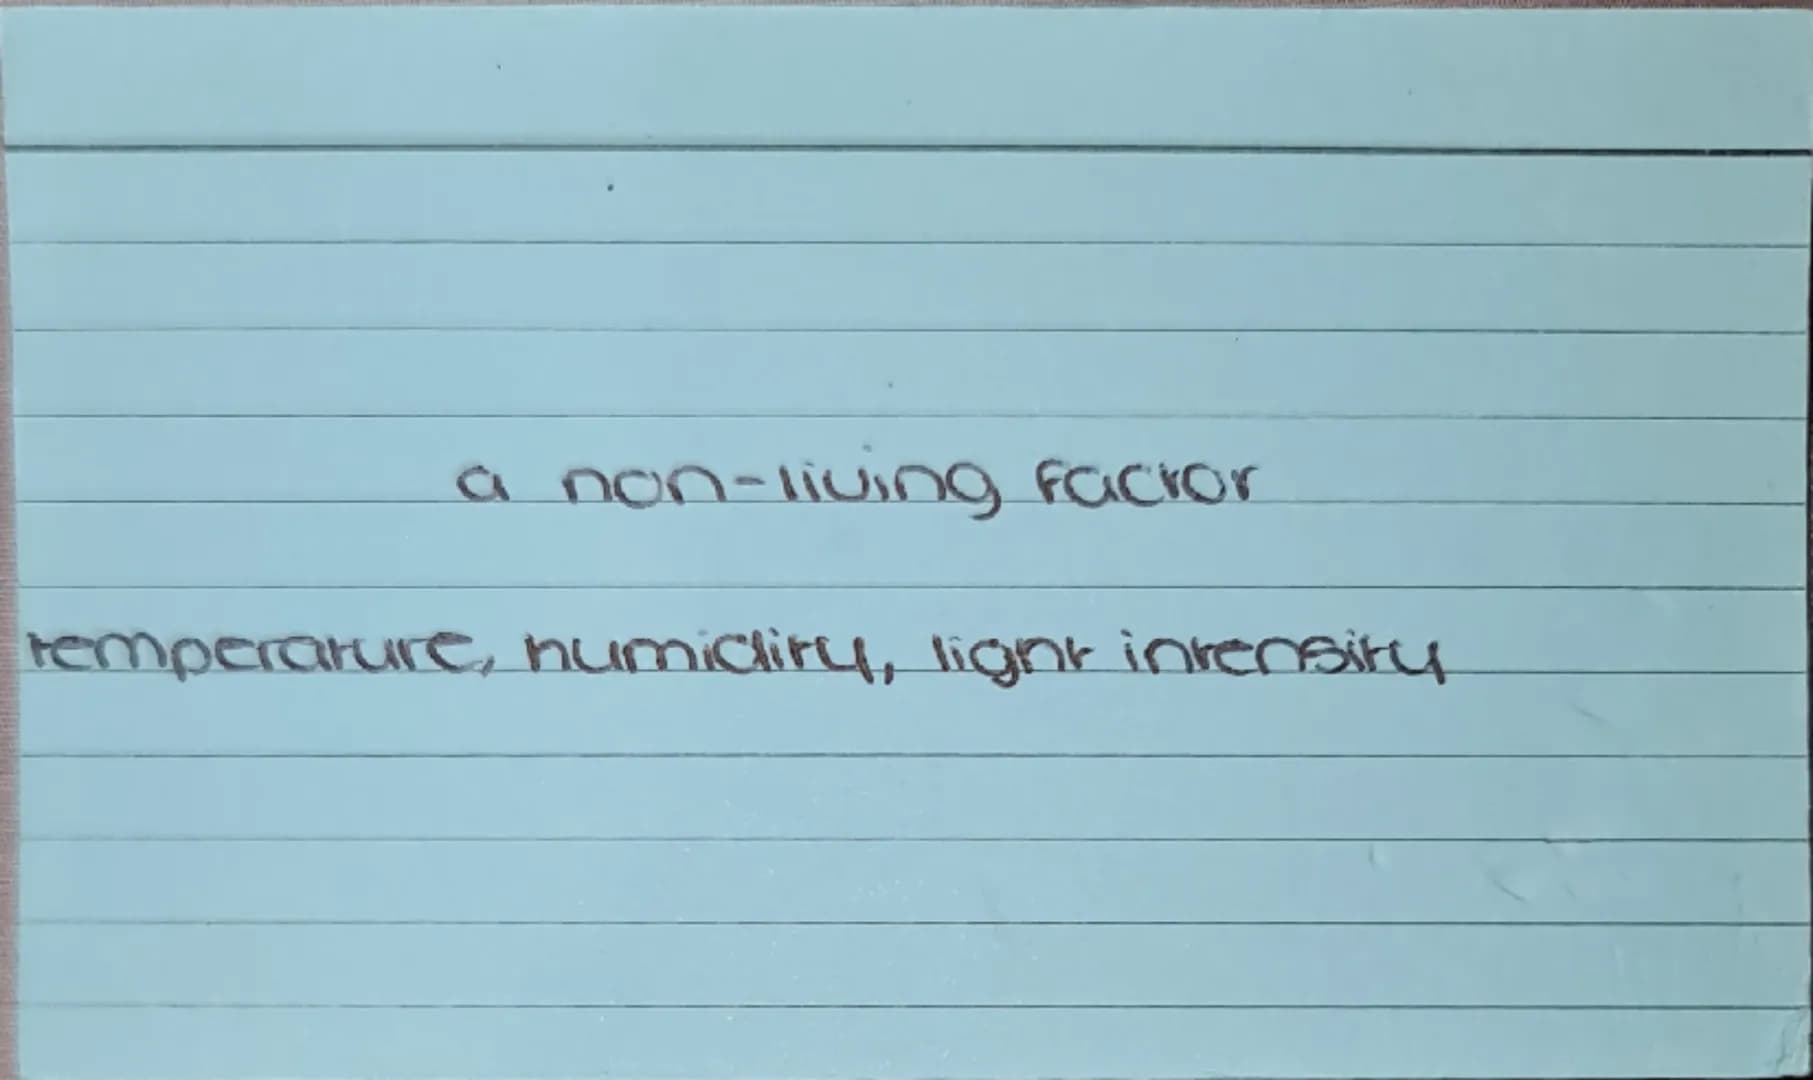 a non-living factor
temperature, humidity, light intensity